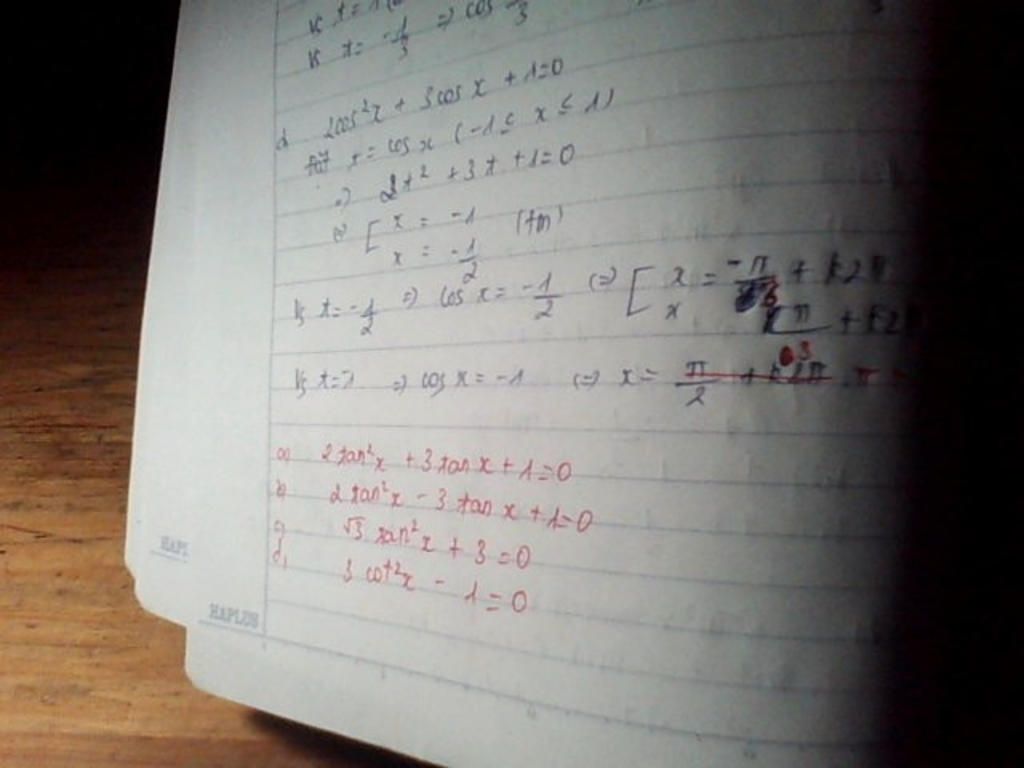 Vs t = 1
Vs t = -1/3 => cos
d, 2cos²x + 3cos x + 1=0
Đặt t = cos x (-1 ≤ x ≤ 1)
=> 2t² + 3t + 1=0
<=> [ x = -1 (tm)
x = -1/2
Vs t = -1/2 => cos x = -1/2 <=> [ x = -π/3 + k2π
x π/3 + k2π
Vs t = -1 => cos x = -1 <=> x = π/2 + k2π
a) 2 tan²x + 3 tan x + 1=0
b) 2 tan²x - 3 tan x + 1=0
c) √3 tan²x + 3 =0
d, 3 cot²x - 1 = 0
HAPL
HAPLUS